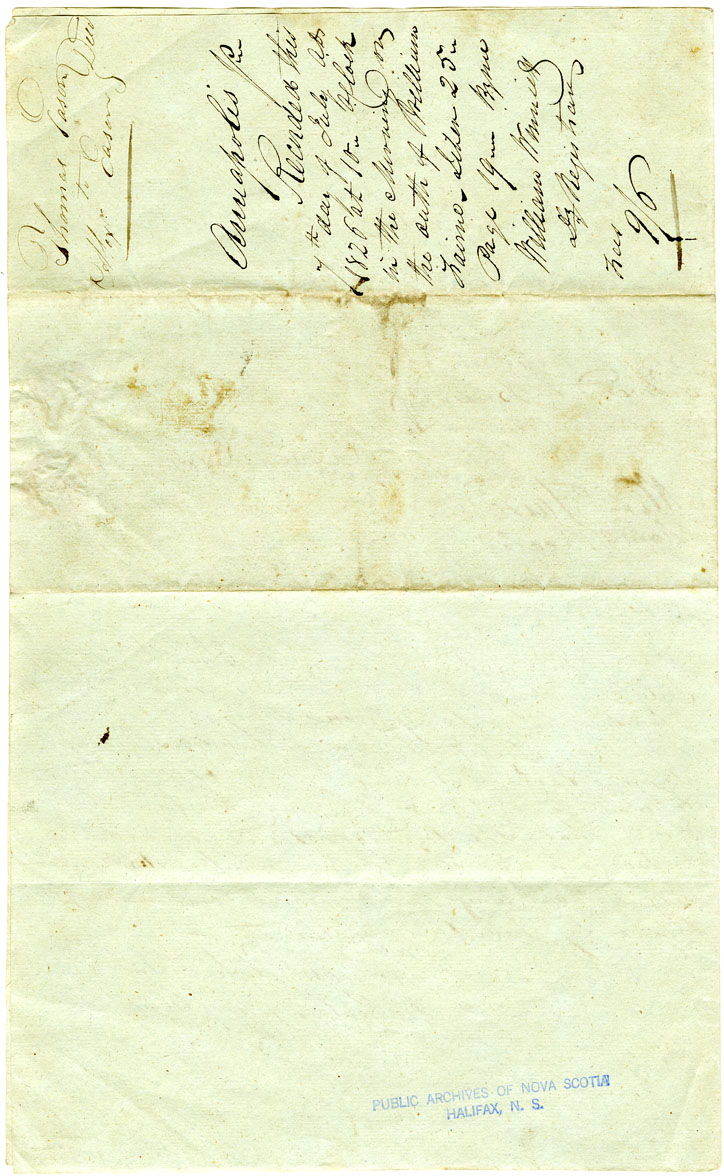 Thomas Eason
to } Deed
Alexr Eason
Annapolis ss
Recorded this
7th day of July AD
1826 at 10 oClock
in the Morning on
the oath of William
Liber 25
Page 19
William Winniett
Dy Registrar
Fees
9/6
PUBLIC ARCHIVES OF NOVA SCOTIA
HALIFAX, N. S.